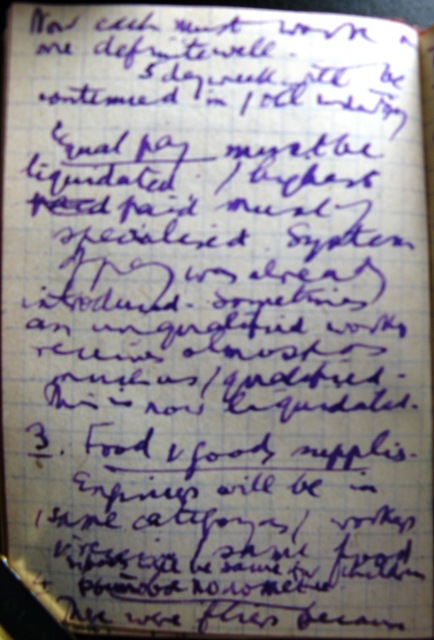 Now each must work
one definite well.
5 day week will be
continued in / oil industry
Equal pay must be
liquidated. / highest
paid must
specialised. System
of pay was already
introduced. Sometimes
an unqualified worker
receives almost as
much as / qualified.
This is now liquidated.
3. Food & goods supplies.
Engineers will be in
same category as / workers
& receive / same food
will be same for children
There were flies because